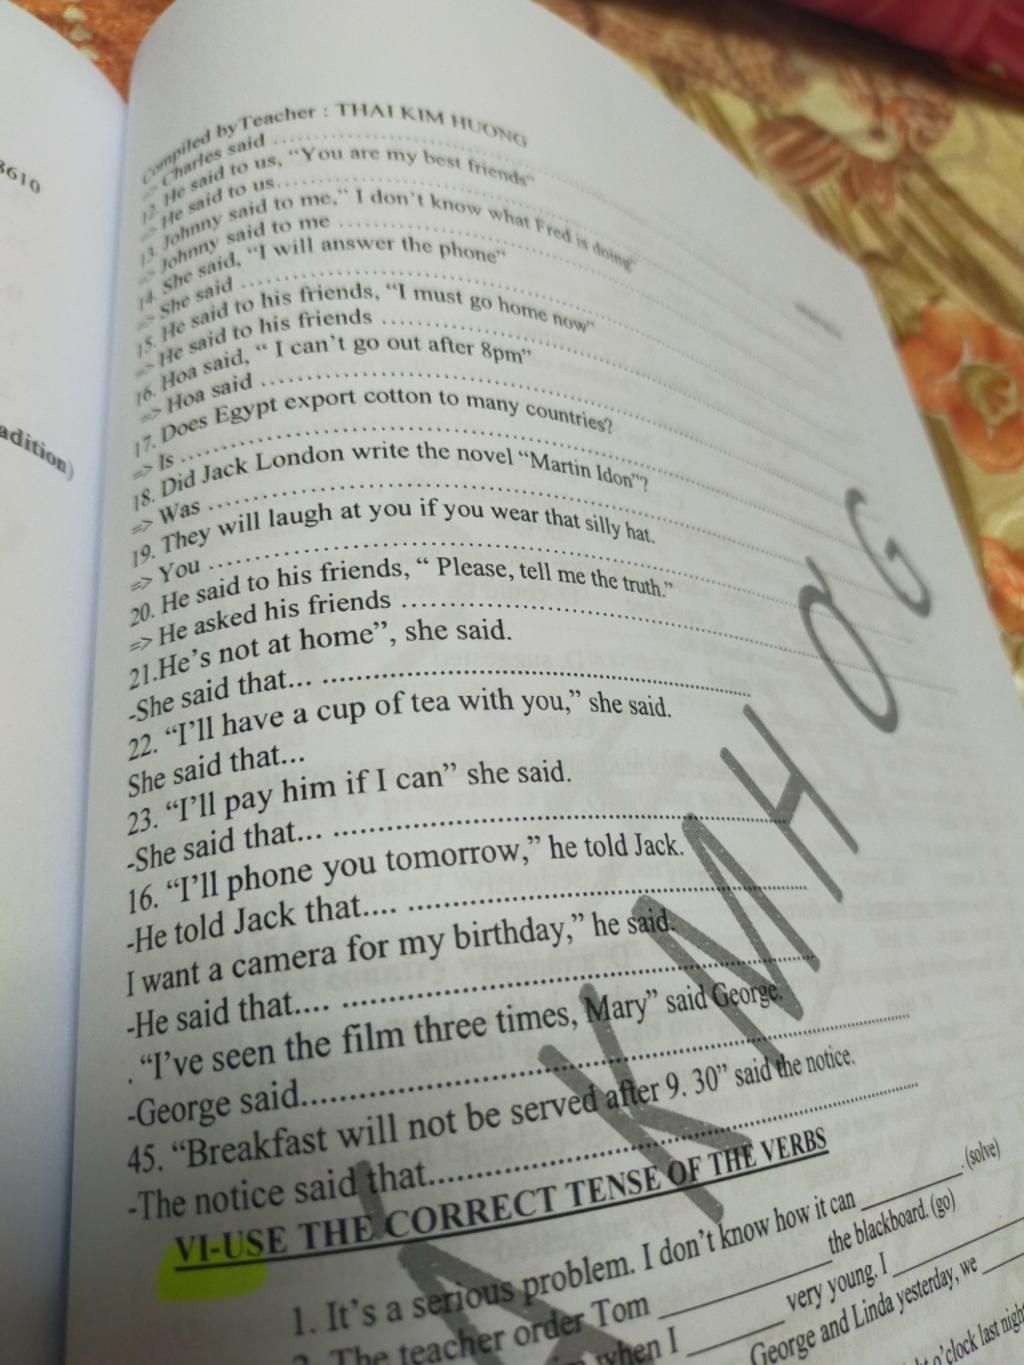 3610
adition)
Compiled by Teacher : THAI KIM HUONG
=> Charles said ........................
12. He said to us, “You are my best friends”
=> He said to us........................
13. Johnny said to me,“ I don’t know what Fred is doing”
=> Johnny said to me ........................
14. She said, “I will answer the phone”
=> She said ........................
15. He said to his friends, “I must go home now”
=> He said to his friends ........................
16. Hoa said, “ I can’t go out after 8pm”
=> Hoa said ........................
17. Does Egypt export cotton to many countries?
=> Is ........................
18. Did Jack London write the novel “Martin Idon”?
=> Was ........................
19. They will laugh at you if you wear that silly hat.
=> You ........................
20. He said to his friends, “ Please, tell me the truth.”
=> He asked his friends ........................
21.He’s not at home”, she said.
-She said that... ........................
22. “I’ll have a cup of tea with you,” she said.
She said that...
23. “I’ll pay him if I can” she said.
-She said that... ........................
16. “I’ll phone you tomorrow,” he told Jack.
-He told Jack that.... ........................
I want a camera for my birthday,” he said.
-He said that.... ........................
. “I’ve seen the film three times, Mary” said George.
-George said........................
45. “Breakfast will not be served after 9. 30” said the notice.
-The notice said that........................
VI-USE THE CORRECT TENSE OF THE VERBS
1. It’s a serious problem. I don’t know how it can ________. (solve)
2. The teacher order Tom ________ the blackboard. (go)
when I ________ very young. I ________
George and Linda yesterday, we ________
o’clock last night
KMH
G